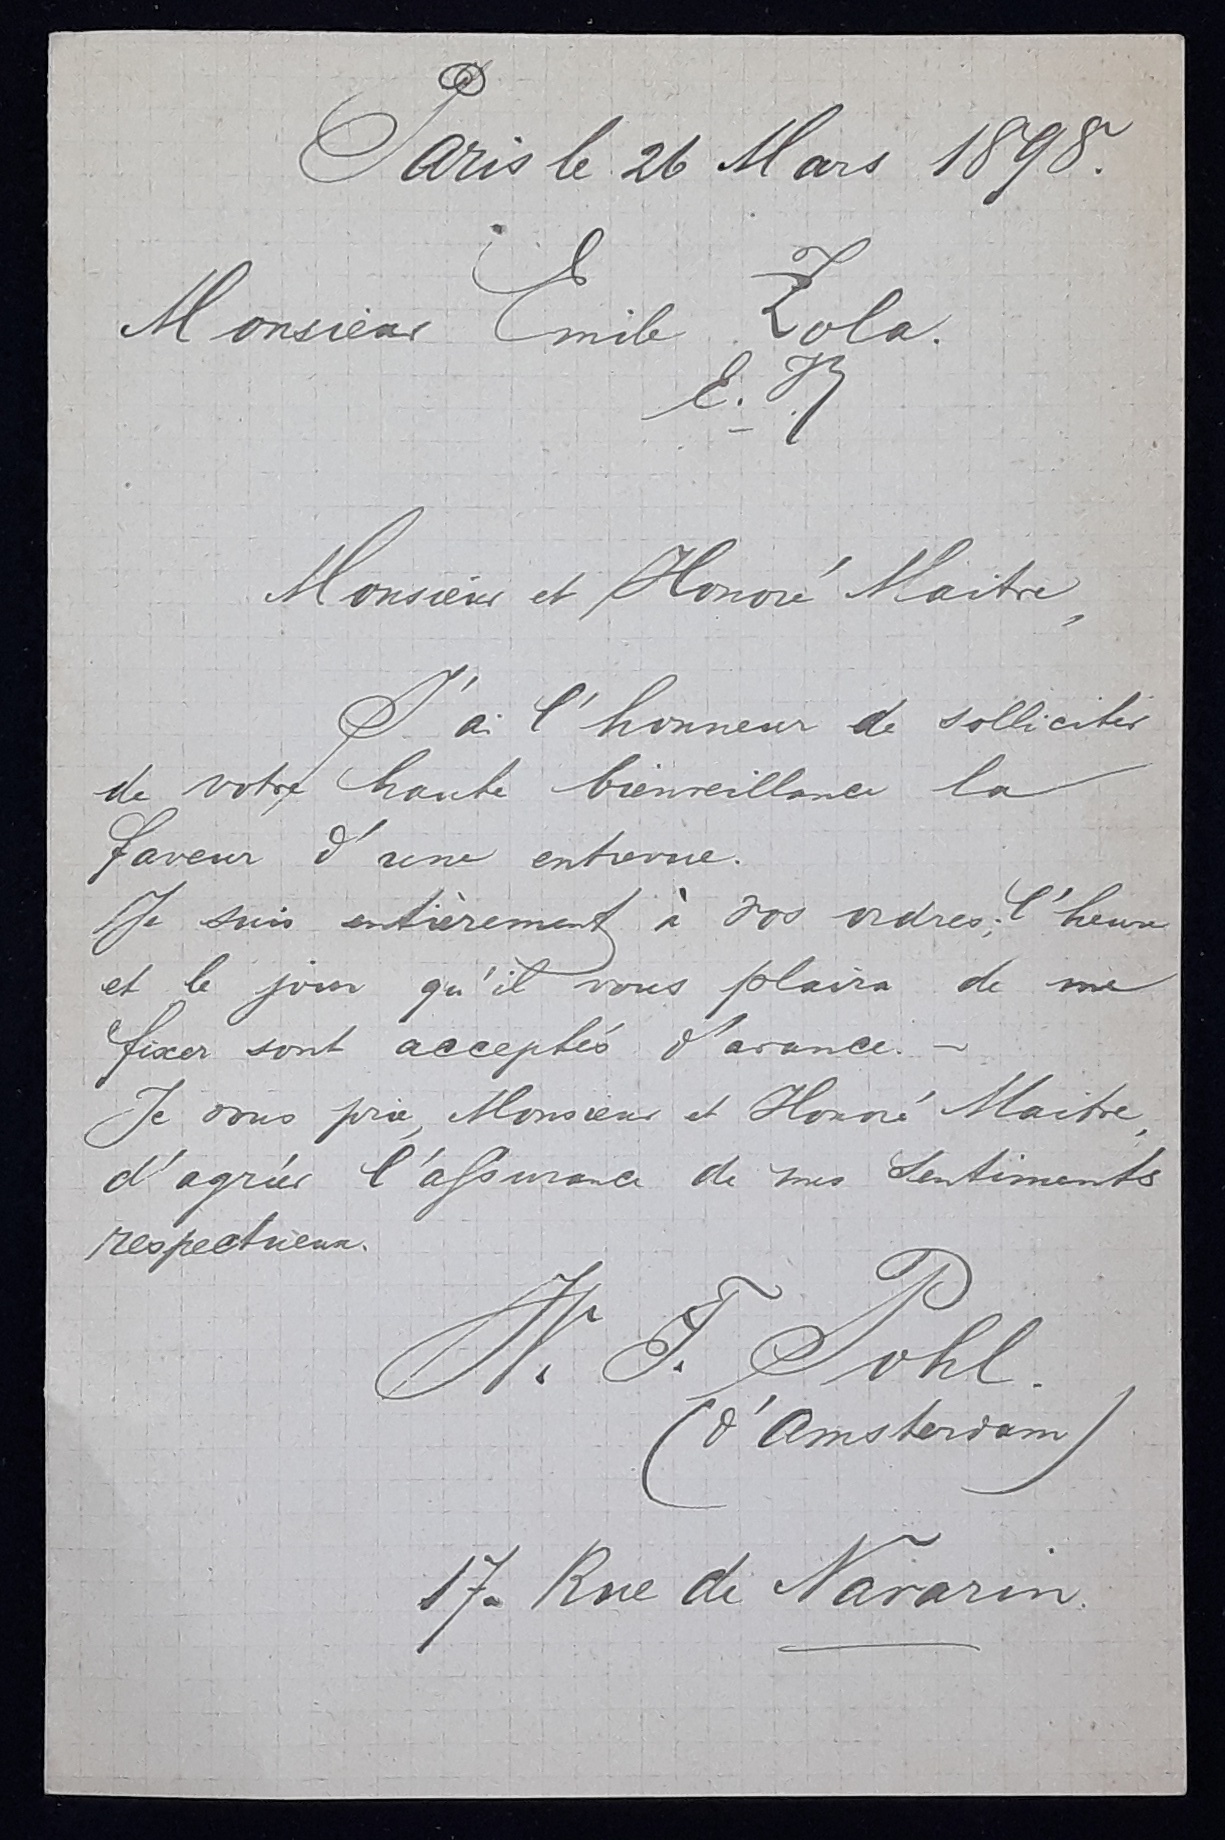 Paris le 26 Mars 1898.
Monsieur Emile Zola.
E. V.
Monsieur et Honoré Maitre,
J'ai l'honneur de solliciter
de votre haute bienveillance la
faveur d'une entrevue.
Je suis entièrement à vos ordres; l'heure
et le jour qu'il vous plaira de me
fixer sont acceptés d'avance. –
Je vous prie, Monsieur et Honoré Maitre,
d'agréer l'assurance de mes sentiments
respectueux.
W. F. Pohl.
(d'Amsterdam)
17. Rue de Navarin.